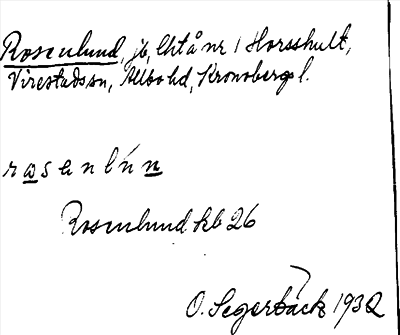 Rosenlund, jb, lht å nr 1 Horsshult,
Virestads sn, Allbo hd, Kronobergs l.
rasenlún
Rosenlund kb 26
O. Segerbäck 1932